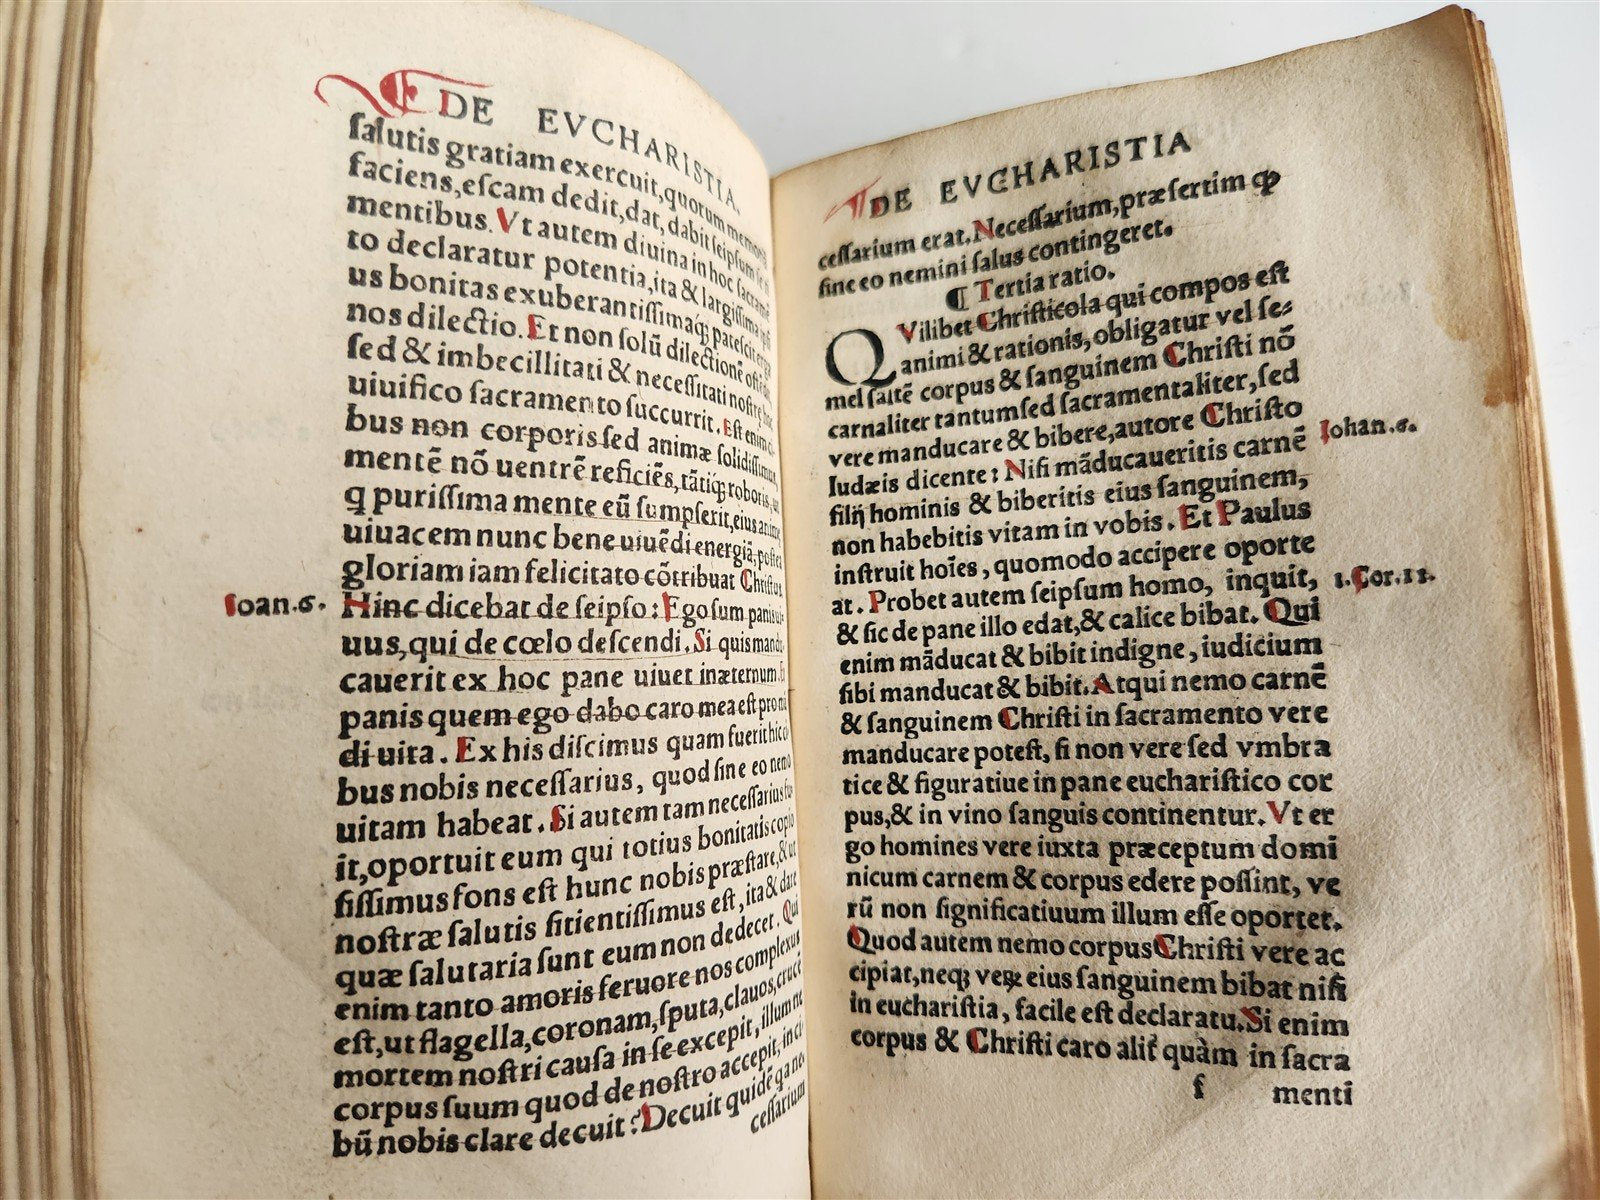 DE EVCHARISTIA.
ſalutis gratiam exercuit, quorum memoriā
faciens, eſcam dedit, dat, dabit ſeipſum
mentibus. Vt autem diuina in hoc ſacramē
to declaratur potentia, ita & largiſſima ipſi
us bonitas exuberantiſſimaq́; pateſcit erga
nos dilectio. Et non ſolū dilectionē oſtēdit,
ſed & imbecillitati & neceſſitati noſtrę huic
uiuifico ſacramento ſuccurrit. Eſt enim ci
bus non corporis ſed animæ ſolidiſſimus,
mentē nō uentrē reficiēs, tātiq; roboris, ut
q puriſſima mente eū ſumpſerit, eius animę
uiuacem nunc bene uiuēdi energiā, poſtea
gloriam iam felicitato cōtribuat Chriſtus.
Ioan.6. Hinc dicebat de ſeipſo: Ego ſum panis ui-
uus, qui de cœlo deſcendi. Si quis mandu-
cauerit ex hoc pane uiuet inæternum. Et
panis quem ego dabo caro mea eſt pro mū
di uita. Ex his diſcimus quam fuerit hic ci
bus nobis neceſſarius, quod ſine eo nemo
uitam habeat. Si autem tam neceſſarius fu-
it, oportuit eum qui totius bonitatis copio
ſiſſimus fons eſt hunc nobis præſtare, & ut
noſtræ ſalutis ſitientiſſimus eſt, ita & dare
quæ ſalutaria ſunt eum non dedecet. Qui
enim tanto amoris feruore nos complexus
eſt, ut flagella, coronam, ſputa, clauos, crucē
mortem noſtri cauſa in ſe excepit, illum ne
corpus ſuum quod de noſtro accepit, in ci-
bū nobis clare decuit? Decuit quidē q a ne-
ceſſarium
DE EVCHARISTIA
ceſſarium erat. Neceſſarium, præſertim ꝙ
ſine eo nemini ſalus contingeret.
¶ Tertia ratio.
QVilibet Chriſticola qui compos eſt
animi & rationis, obligatur vel ſe-
mel ſaltē corpus & ſanguinem Chriſti nō
carnaliter tantum ſed ſacramentaliter, ſed
vere manducare & bibere, autore Chriſto
Iudæis dicente: Niſi māducaueritis carnē Iohan.6.
filij hominis & biberitis eius ſanguinem,
non habebitis vitam in vobis. Et Paulus
inſtruit hoīes, quomodo accipere oporte
at. Probet autem ſeipſum homo, inquit, 1.Cor.11.
& ſic de pane illo edat, & calice bibat. Qui
enim māducat & bibit indigne, iudicium
ſibi manducat & bibit. Atqui nemo carnē
& ſanguinem Chriſti in ſacramento vere
manducare poteſt, ſi non vere ſed vmbra
tice & figuratiue in pane euchariſtico cor
pus, & in vino ſanguis continentur. Vt er
go homines vere iuxta præceptum domi
nicum carnem & corpus edere poſſint, ve
rū non ſignificatiuum illum eſſe oportet.
Quod autem nemo corpus Chriſti vere ac
cipiat, neq; veꝝ eius ſanguinem bibat niſi
in euchariſtia, facile eſt declaratu. Si enim
corpus & Chriſti caro alit̉ quàm in ſacra
f menti